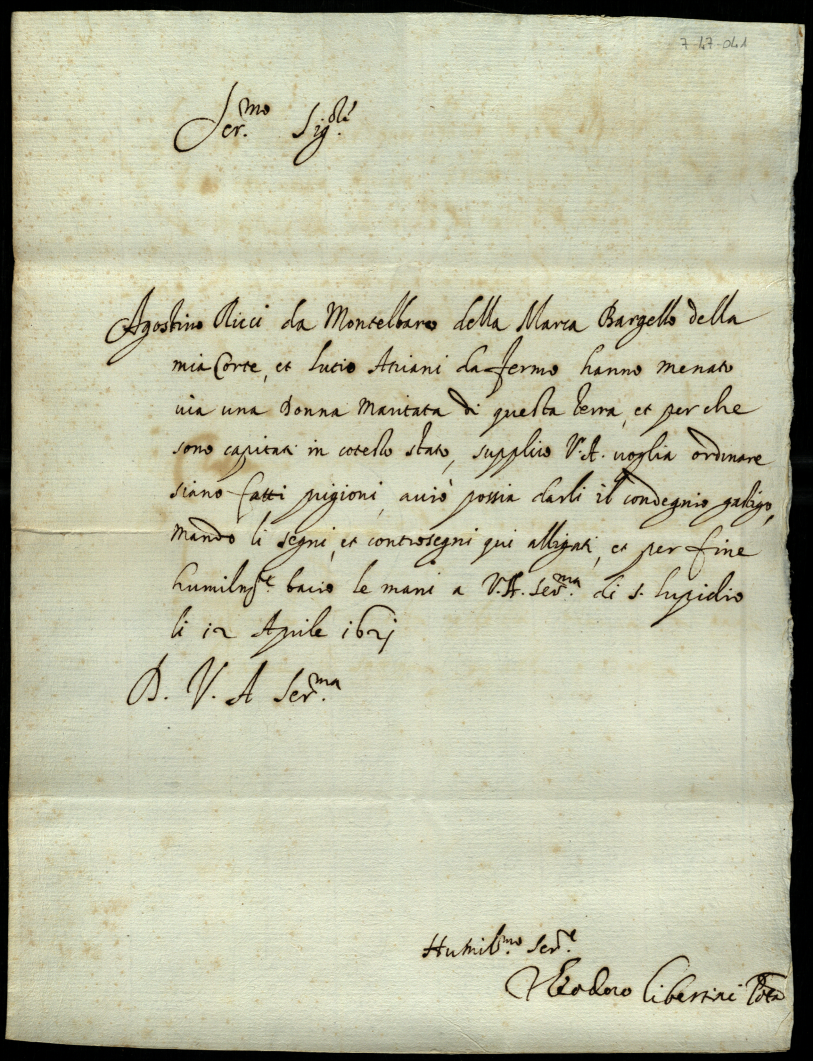 7 47-041
Ser.mo Sig.re
Agostino Ricci da Montelbaro della Marca Bargello della
mia Corte, et Lutio Atriani da fermo hanno menato
via una Donna Maritata di questa terra, et perche
sono capitati in cotesto stato, supplico V.A. voglia ordinare
siano fatti prigioni, acciò possia darli il condegnio gastigo,
mando li segni, et contrasegni qui alligati, et per fine
humilm.te bacio le mani a V.A. Ser.ma di s. Lupidio
li 12 Aprile 1621
D. V. A Ser.ma
Humil.mo Ser.e
Teodoro Libertini Potà